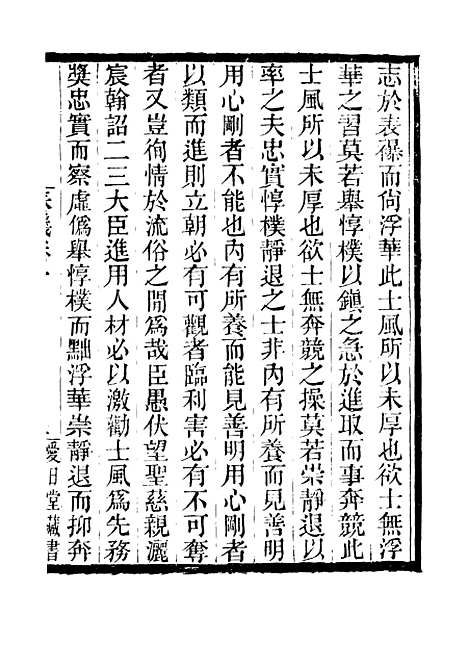 志於表襮而尙浮華此士風所以未厚也欲士無浮
華之習莫若舉惇樸以鎭之急於進取而事奔競此
士風所以未厚也欲士無奔競之操莫若崇靜退以
率之夫忠實惇樸靜退之士非內有所養而見善明
用心剛者不能也內有所養而能見善明用心剛者
以類而進則立朝必有可觀者臨利害必有不可奪
者又豈徇情於流俗之閒爲哉臣愚伏望聖慈親灑
宸翰詔二三大臣進用人材必以激勸士風爲先務
奬忠實而察虛僞舉惇樸而黜浮華崇靜退而抑奔
愛日堂藏書